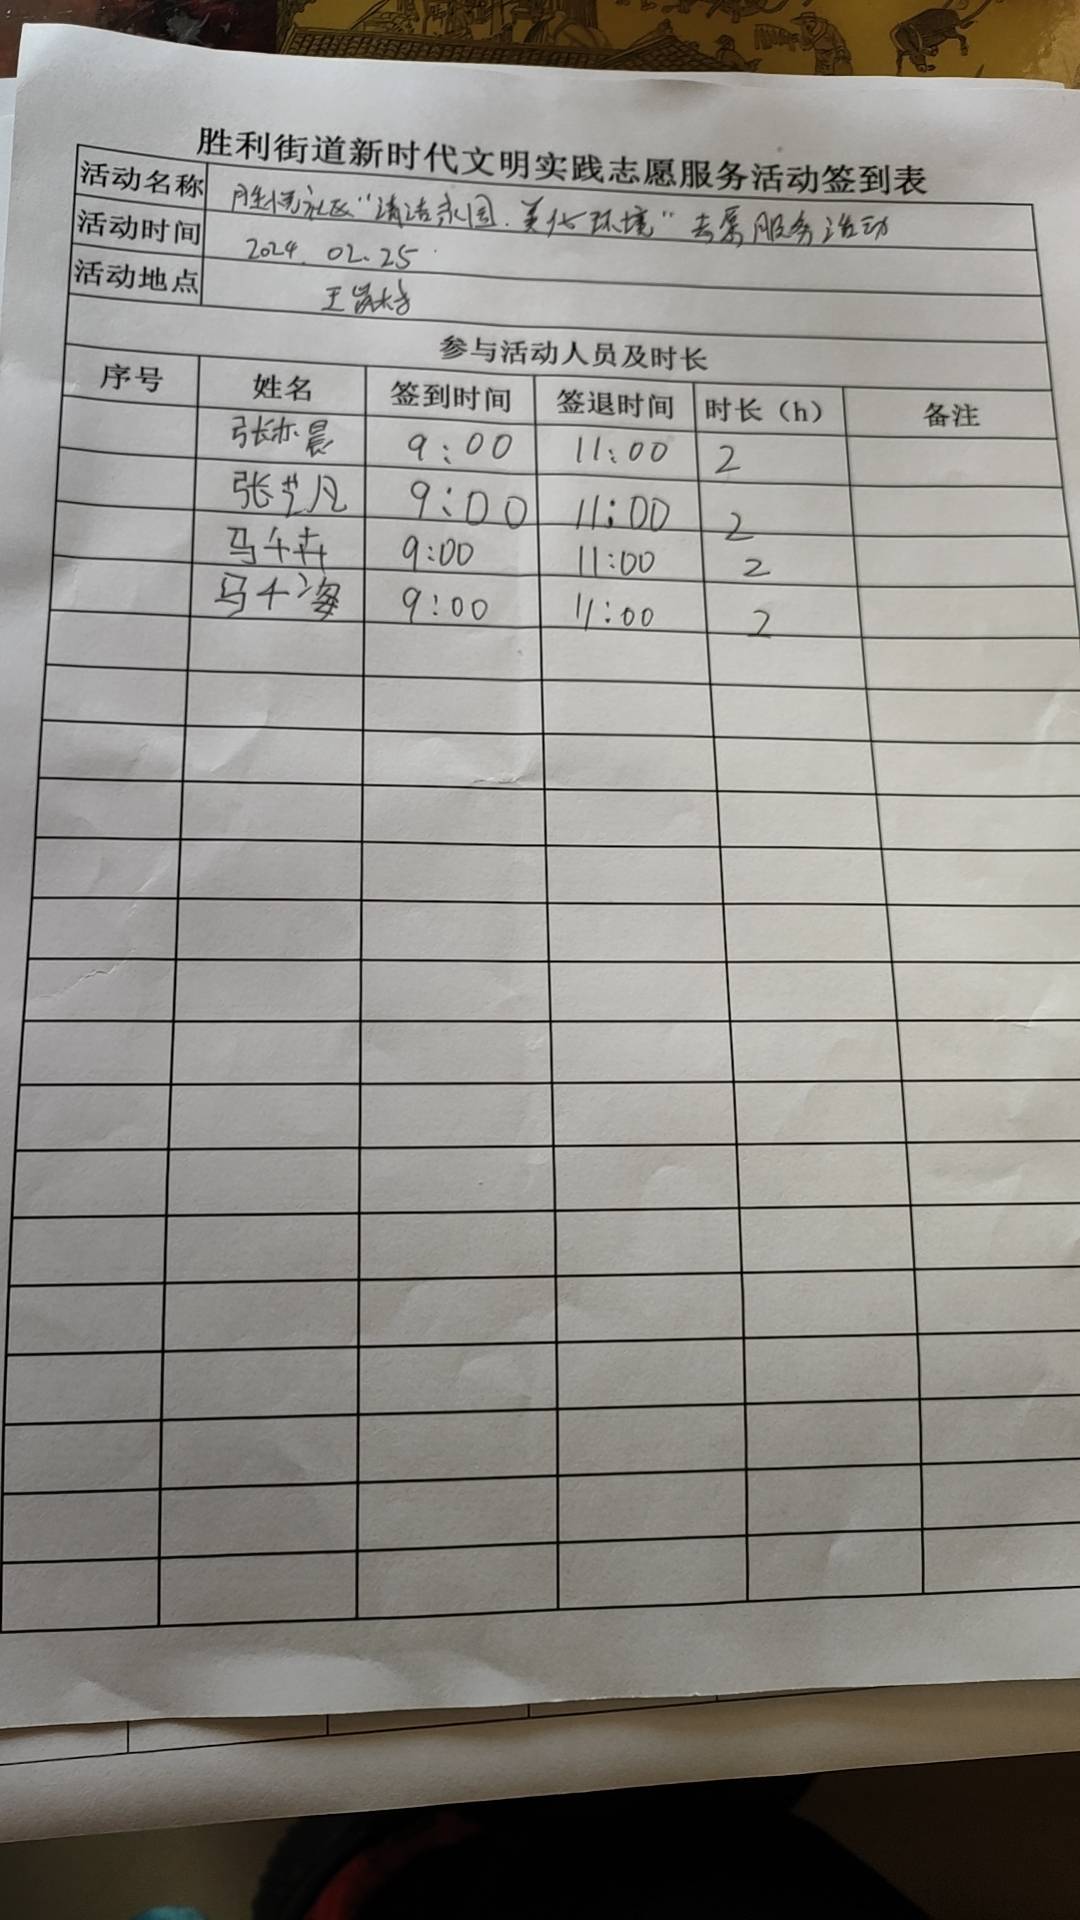 胜利街道新时代文明实践志愿服务活动签到表
活动名称 社区“清洁家园.美化环境”志愿服务活动
活动时间 2024.02.25
活动地点
参与活动人员及时长
序号 姓名 签到时间 签退时间 时长（h） 备注
张亦晨 9:00 11:00 2
张艺凡 9:00 11:00 2
马千卉 9:00 11:00 2
马千海 9:00 11:00 2